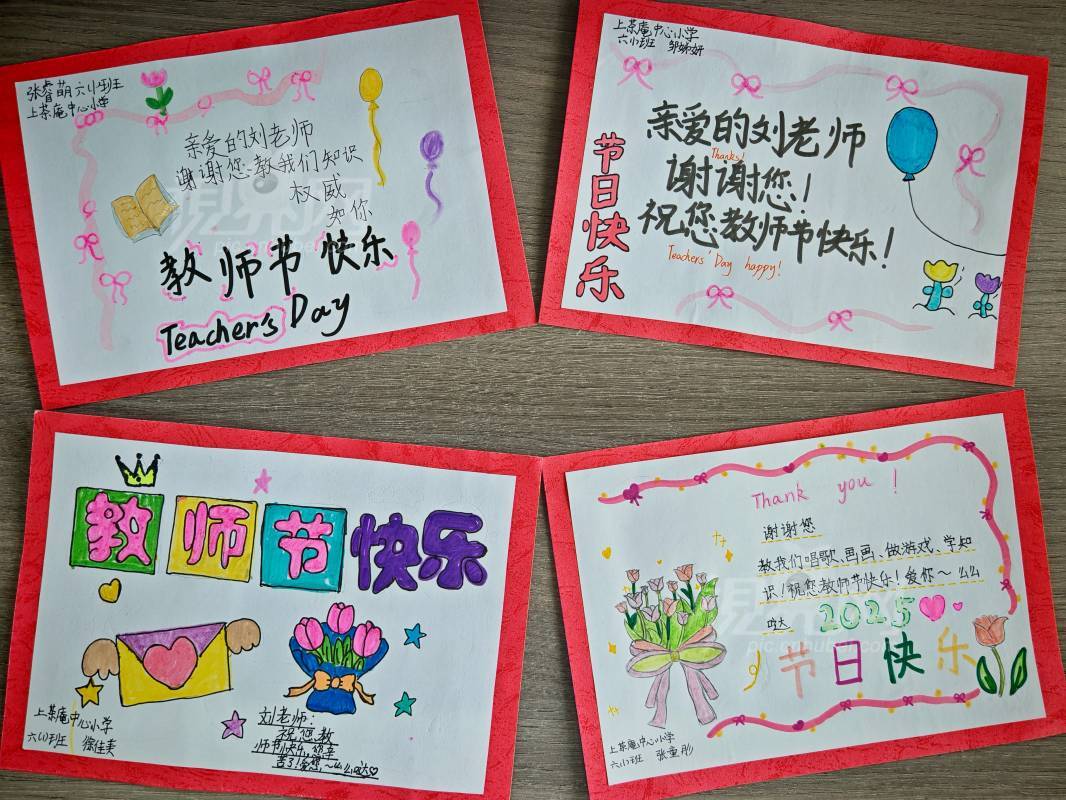 张睿萌 六(1)班
上茶庵中心小学
亲爱的刘老师
谢谢您教我们知识
权威
如你
教师节快乐
Teacher's Day
上茶庵中心小学
六(1)班
节日快乐
亲爱的刘老师
Thanks!
谢谢您!
祝您教师节快乐!
Teachers' Day happy!
教师节快乐
上茶庵中心小学
六(1)班 徐佳奕
刘老师:
祝您教
师节快乐,您辛
苦了!爱您,~么么哒
Thank you!
谢谢您
教我们唱歌、画画、做游戏、学知
识!祝您教师节快乐!爱你~么么
哒
2025
节日快乐
上茶庵中心小学
六(1)班 张童彤